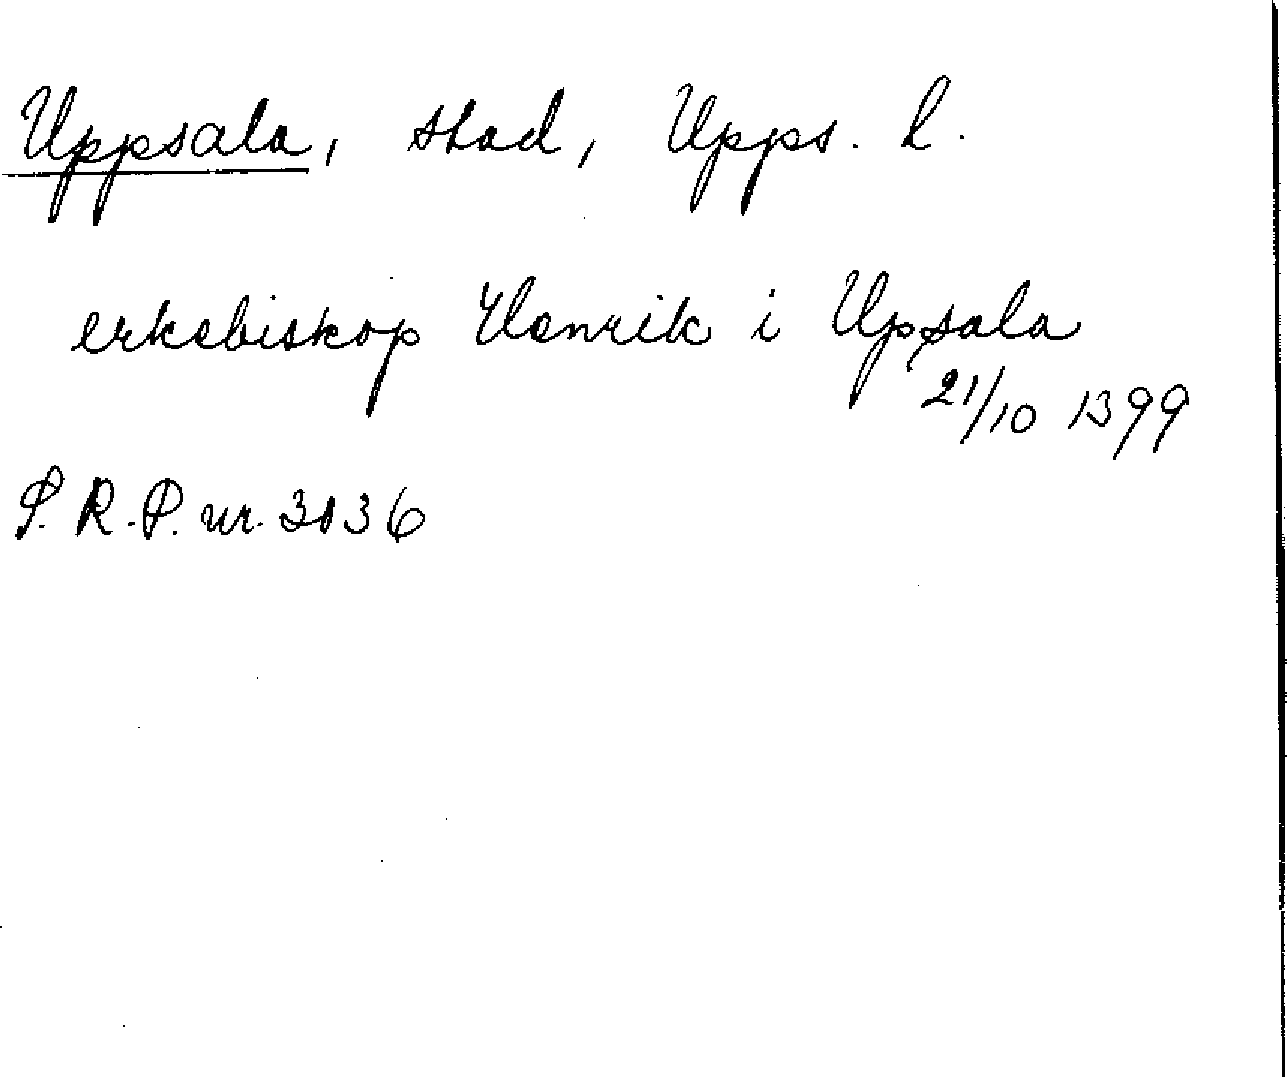 Uppsala, stad, Upps. l.
erkebiskop Henrik i Upsala
21/10 1399
S. R. P. nr. 3036